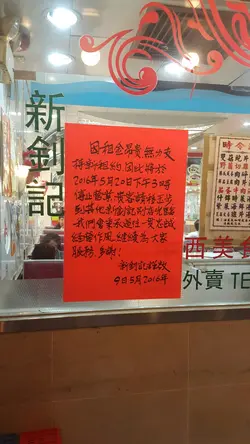 新釗記
因租金昂貴無力支
持新租約 因此將於
2016年5月20日下午3:00時
停止營業,貴客請移玉步
到其他新釗記
我們會秉承過往一貫忠誠
經營作風 繼續為大家
服務,多謝!
新釗記謹啟
9日5月2016年
時令
西美食
外賣 TE